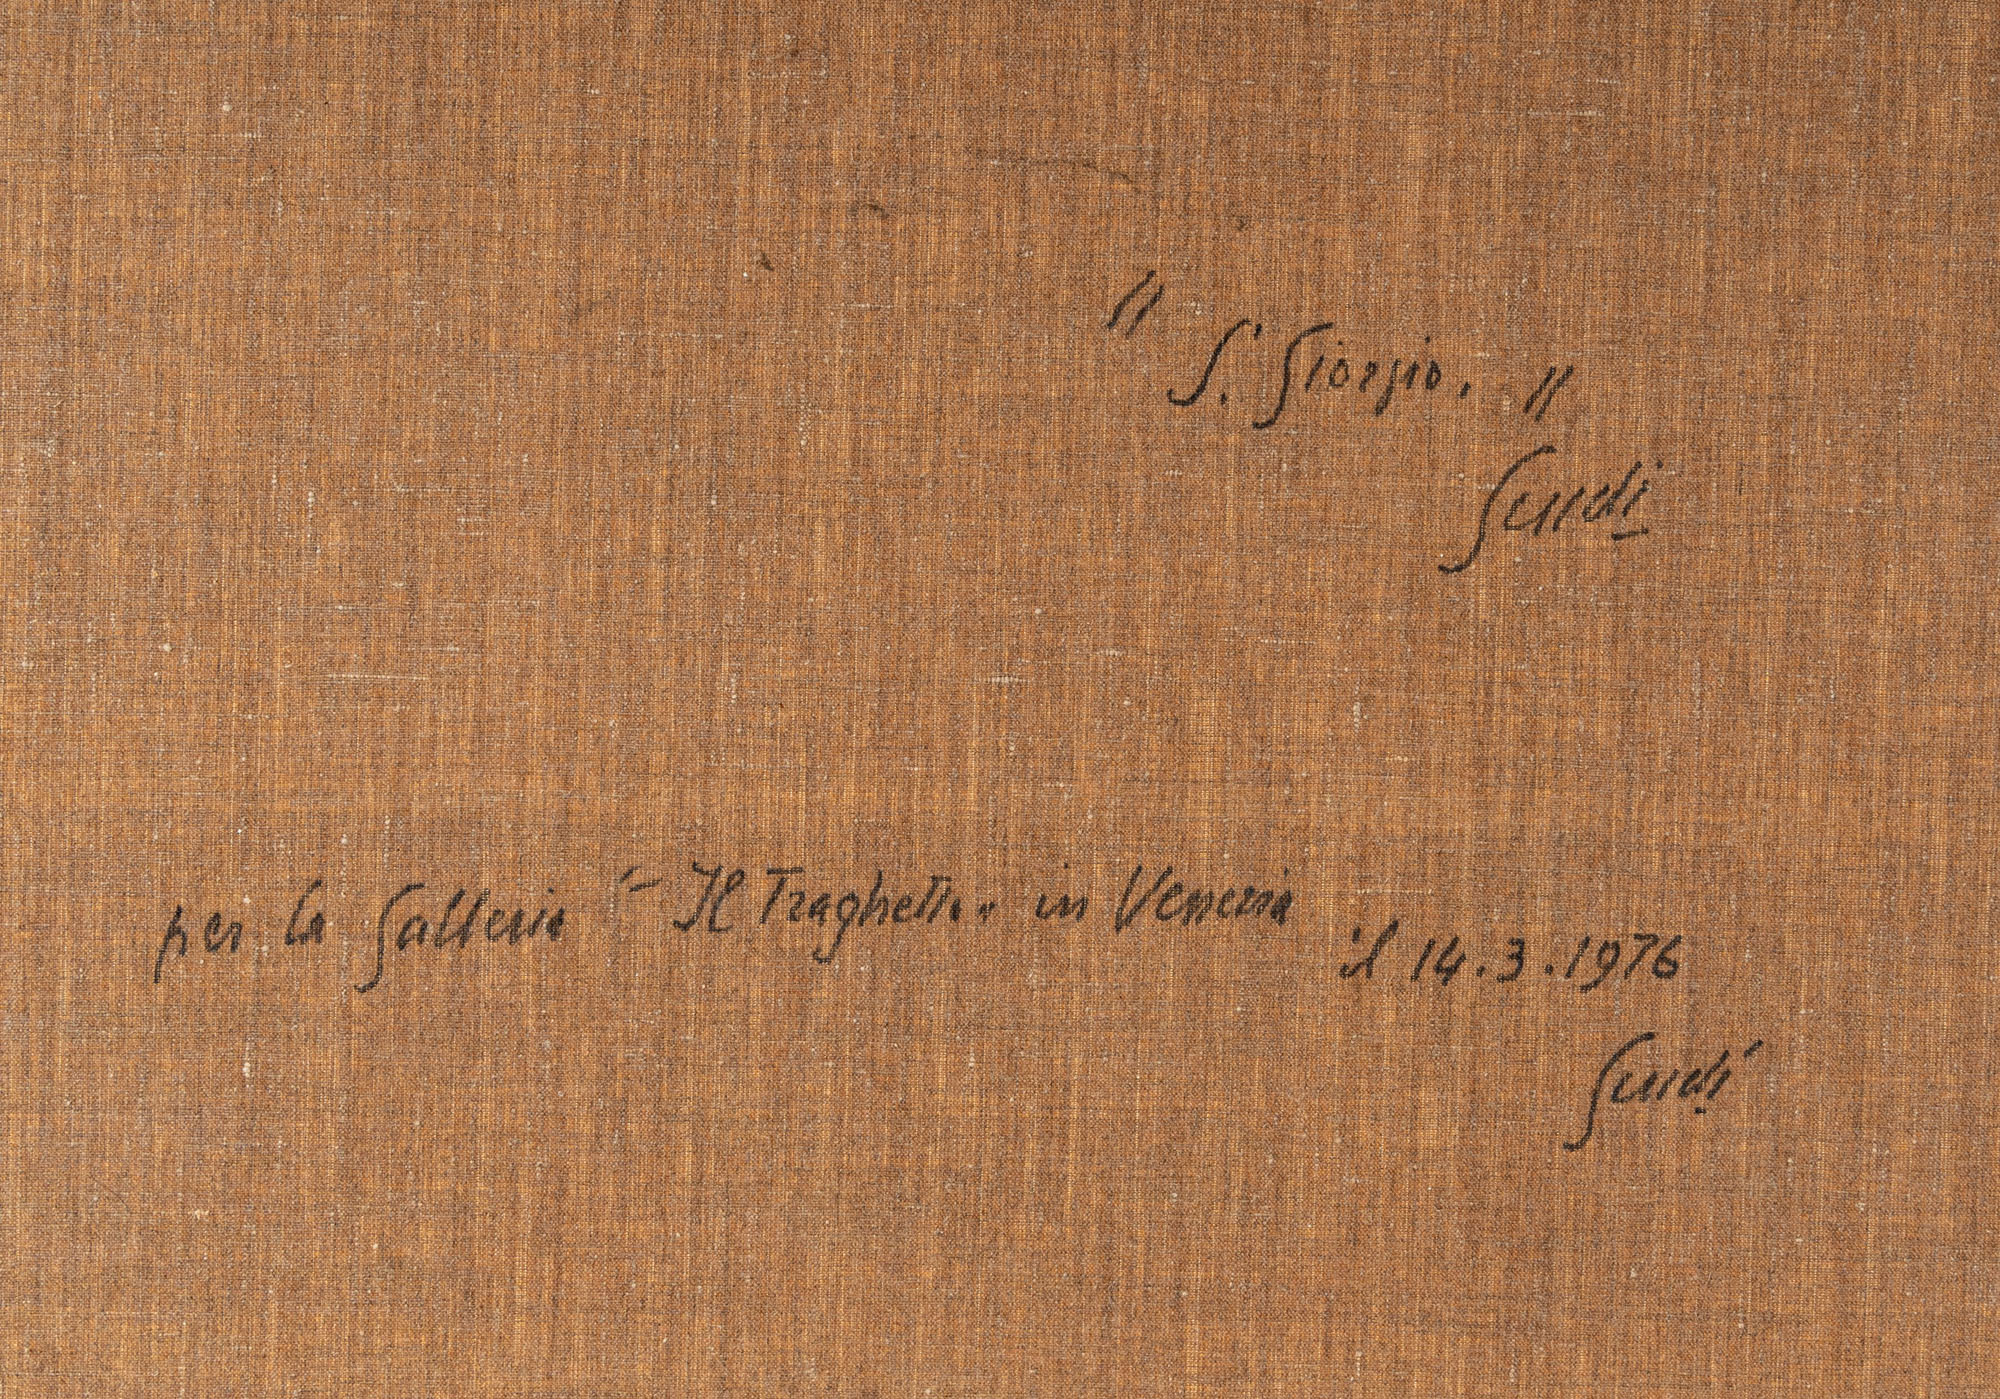 " S. Giorgio. "
Guidi
per la Galleria "Il Traghetto" in Venezia
il 14.3.1976
Guidi